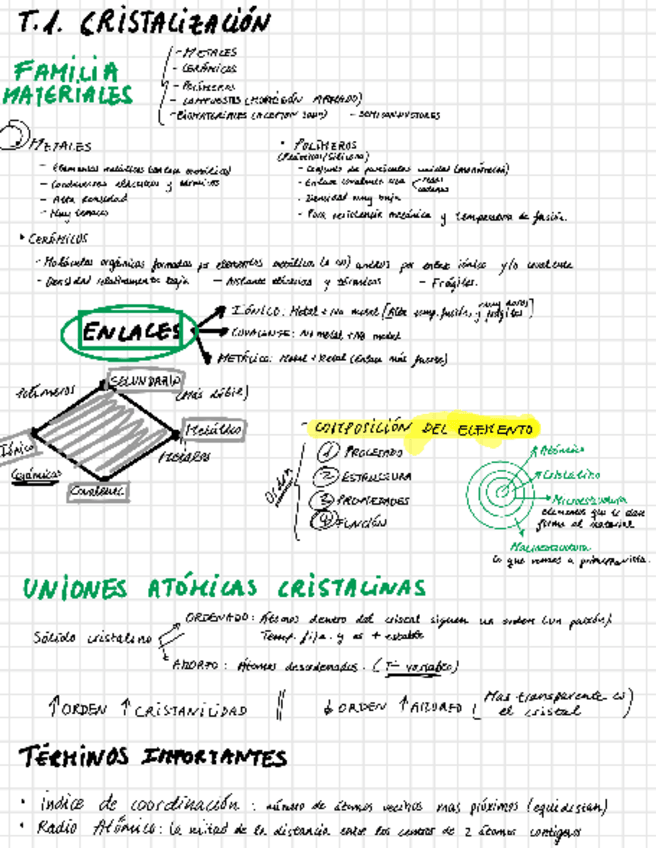 T.1. CRISTALIZACIÓN
FAMILIA MATERIALES
- METALES
- CERÁMICOS
- POLÍMEROS
- COMPUESTOS (HORMIGÓN ARMADO)
- BIOMATERIALES - SEMICONDUCTORES
METALES
- Elementos metálicos (enlace metálico)
- Conductores eléctricos y térmicos
- Alta densidad
- Muy tenaces
• POLÍMEROS
(Plásticos/Silicona)
- Conjunto de partículas unidas (monómeros)
- Enlace covalente redes
cadenas
- Densidad muy baja
- Poca resistencia mecánica y temperatura de fusión.
• CERÁMICOS
- Moléculas orgánicas formadas por elementos metálicos (o no) unidos por enlace iónico y/o covalente
- Densidad relativamente baja - Aislante eléctricos y térmicos - Frágiles.
ENLACES
IÓNICO: Metal + No metal [Alta temp. fusión, muy duros y frágiles]
COVALENTE: No metal + No metal
METÁLICO: Metal + Metal (Enlace más fuerte)
Polímeros
SECUNDARIO
(más débil)
Iónico
Metálico
Metales
Cerámicos
Covalente
- COMPOSICIÓN DEL ELEMENTO
Orden
1 PROCESADO
2 ESTRUCTURA
3 PROPIEDADES
4 FUNCIÓN
Atómico
Cristalino
Microestructura
elementos que le dan
forma al material
Macroestructura
lo que vemos a primera vista.
UNIONES ATÓMICAS CRISTALINAS
Sólido cristalino
ORDENADO: Átomos dentro del cristal siguen un orden (un patrón)
Temp. fija. y es + estable
AMORFO: Átomos desordenados. (Tª variable)
↑ORDEN ↑CRISTANILIDAD || ↓ORDEN ↑AMORFO (Mas transparente es
el cristal)
TÉRMINOS IMPORTANTES
• índice de coordinación: número de átomos vecinos mas próximos (equidistan)
• Radio Atómico: la mitad de la distancia entre los centros de 2 átomos contiguos